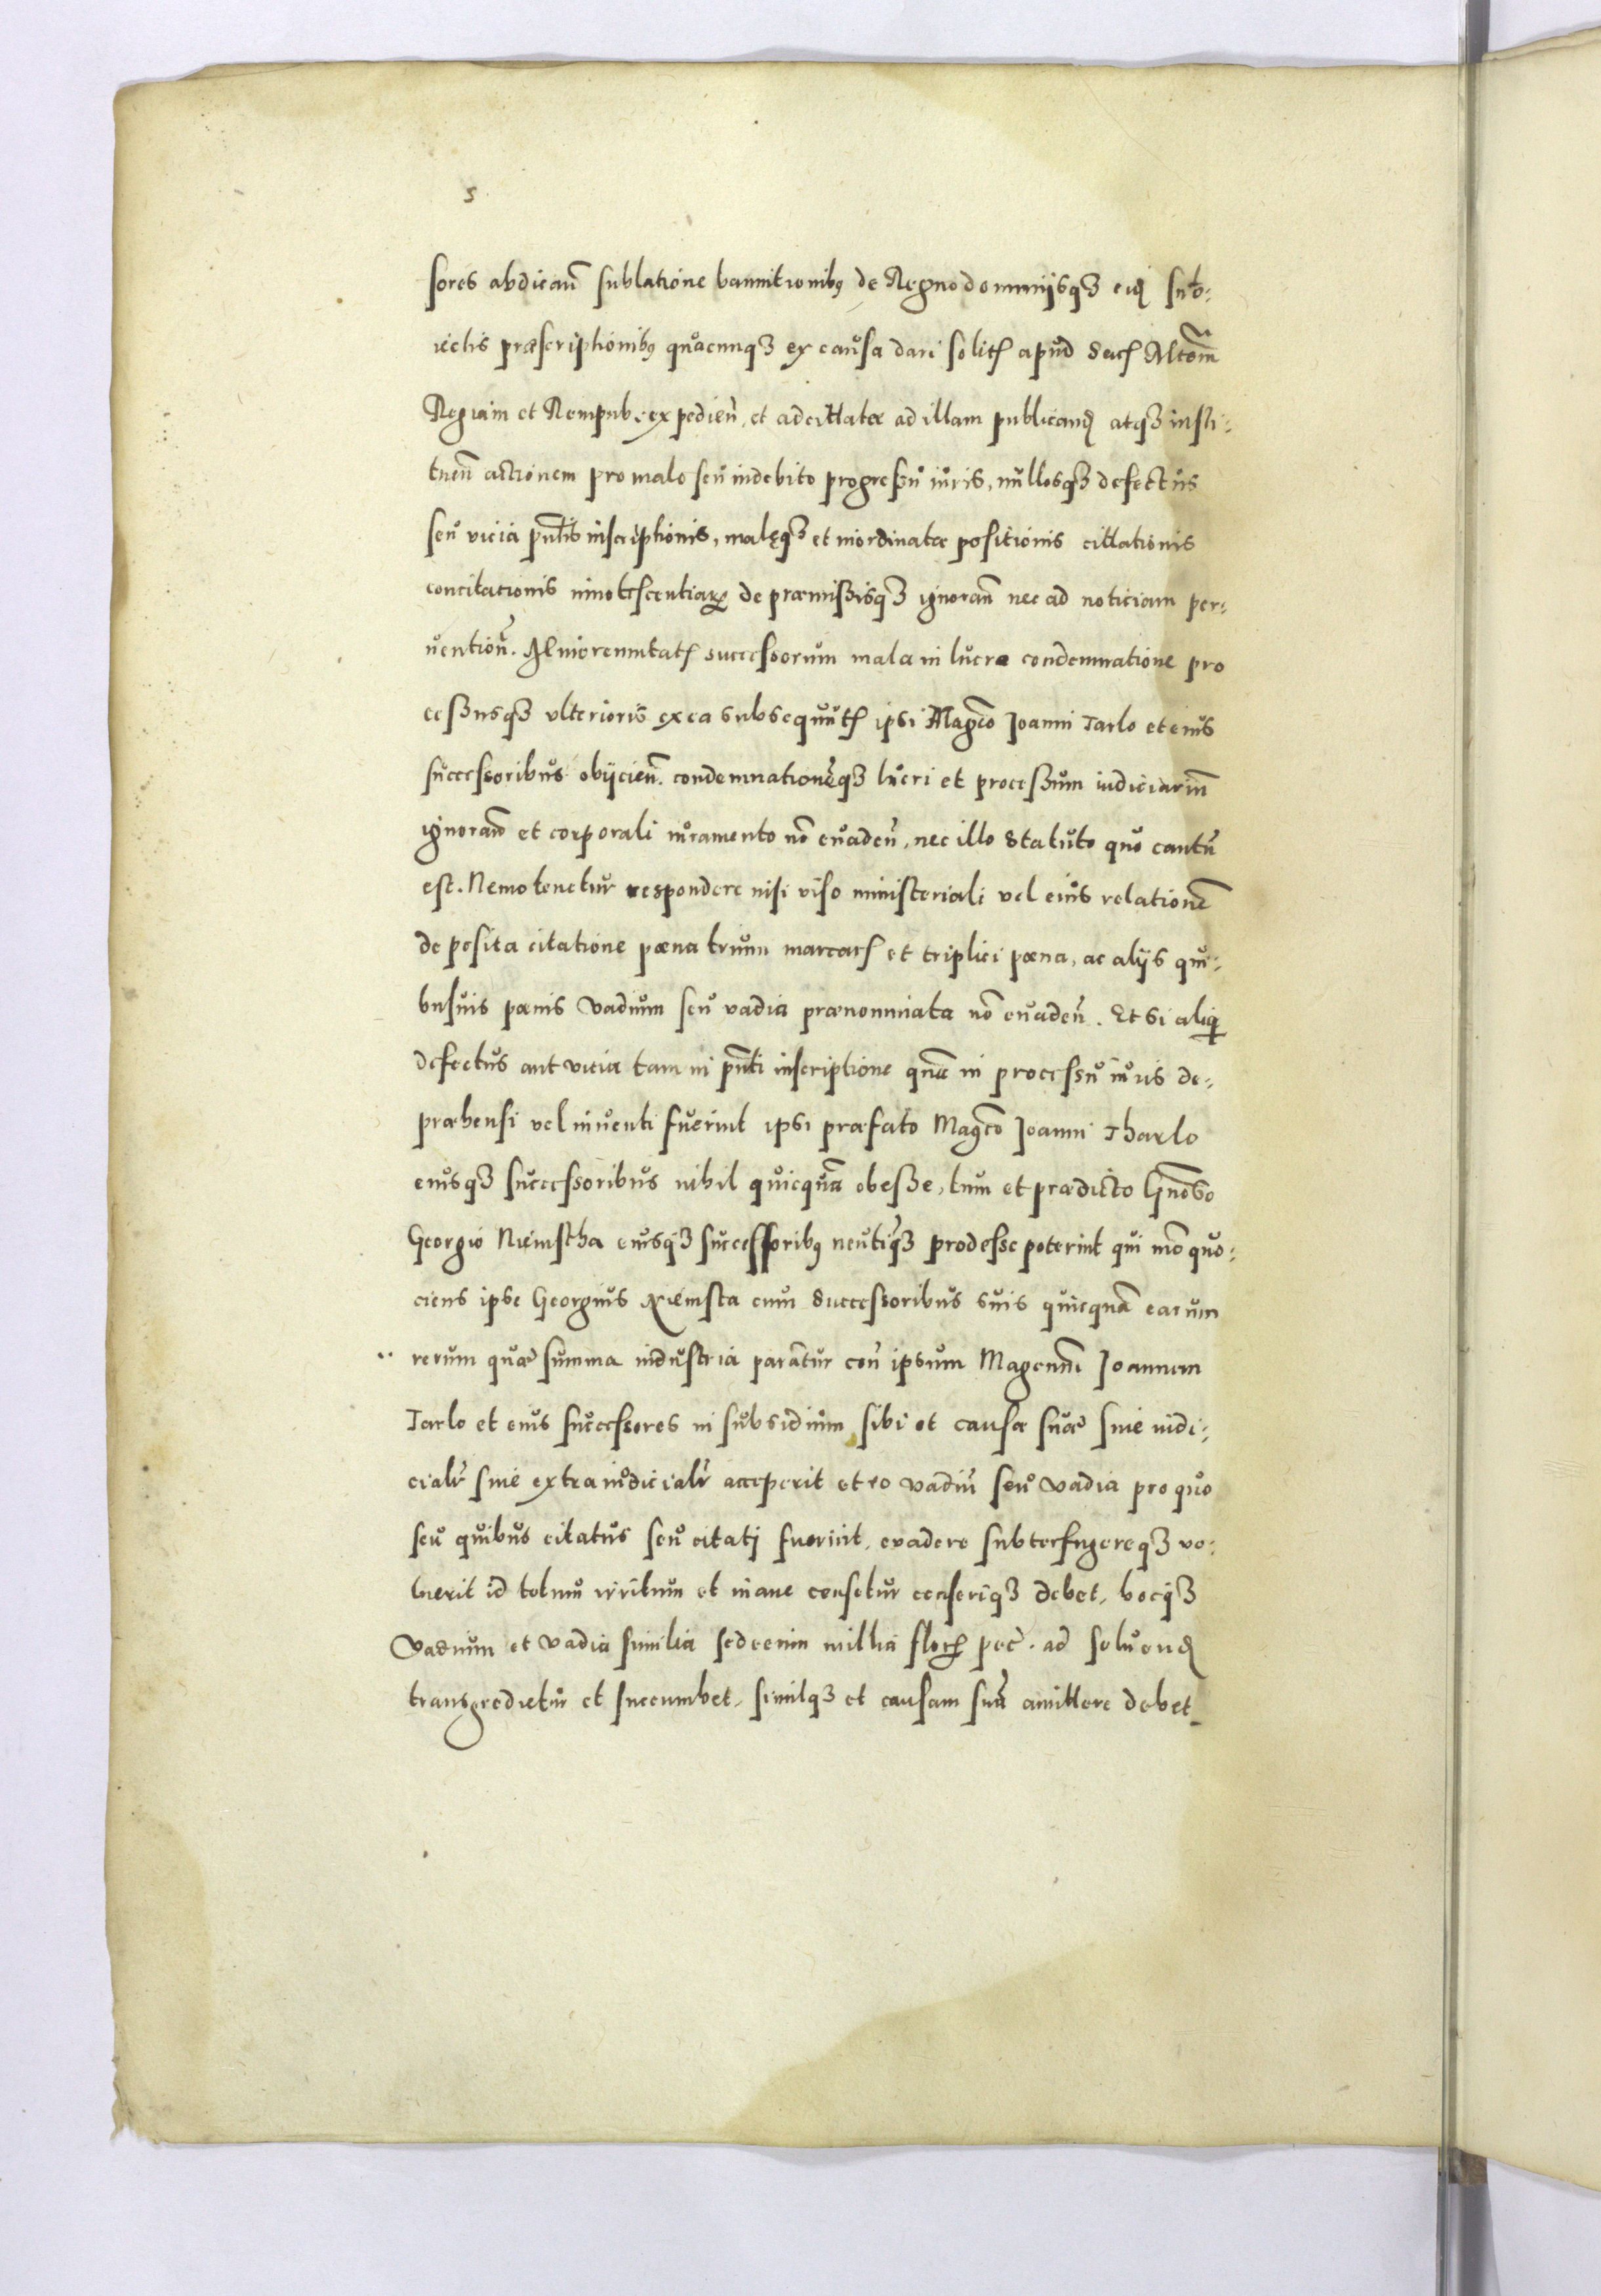 5
sores abdicañ sublatione bannitionibꝫ de Regno dominijsqꝫ eidꝫ sub-
iectis præscriptionibꝫ quacunqꝫ ex causa dari solitꝭ apud Sacꝭ Mtem
Regiam et Rempub: expedieñ, et ad cittatæ ad illam publicandꝫ atqꝫ insti-
tueñ actionem pro malo seu indebito progressu iuris, nullosqꝫ defectus
seu vicia pñtis inscriptionis, malęqꝫ et inordinatæ positionis cittationis
concitationis innotescentiarꝫ de præmissisqꝫ ignorañ nec ad noticiam per-
uentioñ. Al inorennitatꝭ successorum mala in lucra condemnatione pro
cessusqꝫ vlterioris ex ea subsequutꝭ ipsi Magco Joanni Tarlo et eius
successoribus obijcieñ. condemnationẽqꝫ lucri et processum iudiciariũ
ignorañ et corporali iuramento nõ euadeñ, nec illo Statuto quo cautũ
est. Nemo tenetur respondere nisi viso ministeriali vel eius relationẽ
de posita citatione pæna trium marcarꝭ et triplici pæna, ac alijs qui-
busuis pænis vadium seu vadia prænominata nõ euadeñ. Et si aliqꝫ
defectus aut vicia tam in pñti inscriptione quã in processu iuris de-
præhensi vel inuenti fuerint ipsi præfato Magco Joanni Tharlo
eiusqꝫ successoribus nihil quicquã obesse, tum et prædicto Gnoso
Georgio Niemstha eiusqꝫ successoribꝫ neutiqꝫ prodesse poterint qui imo quo-
ciens ipse Georgius Niemsta cum Successoribus suis quicquã earum
rerum quæ summa industria parãtur coñ ipsum Magcum Joannem
Tarlo et eius successores in subsidium sibi et causæ suæ siue iudi-
cialr siue extraiudicialr acceperit et eo vadiũ seu vadia pro quo
seu quibus citatus seu citati fuerint, evadere subterfugereqꝫ vo-
luerit id totum irritum et inane censetur censeriqꝫ debet, hocqꝫ
vadium et vadia similia sedecim millia florꝭ pec. ad soluendꝫ
transgredietur et succumbet, similqꝫ et causam suã amittere debet